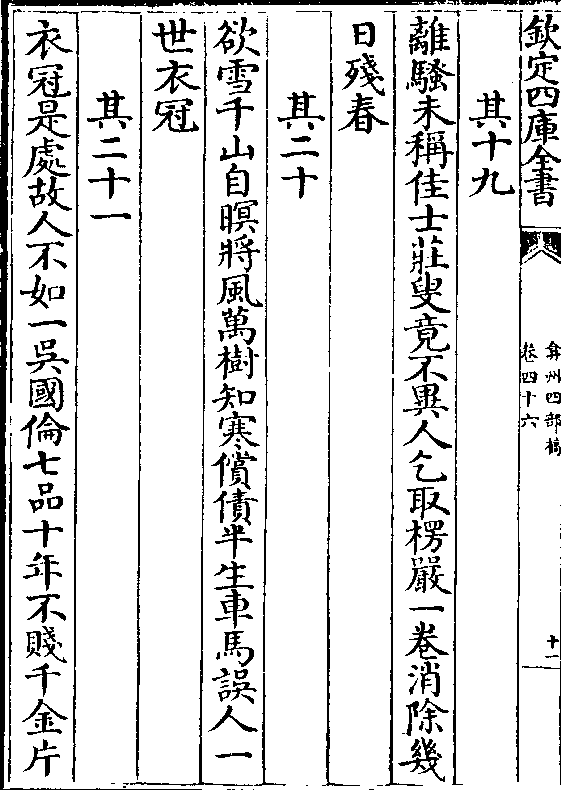 欽定四庫全書
弇州四部稿
卷四十六
十一
其十九
離騷未稱佳士莊叟竟不異人乞取楞嚴一卷消除幾
日殘春
其二十
欲雪千山自暝將風萬樹知寒償債半生車馬誤人一
世衣冠
其二十一
衣冠是處故人不如一吳國倫七品十年不賤千金片